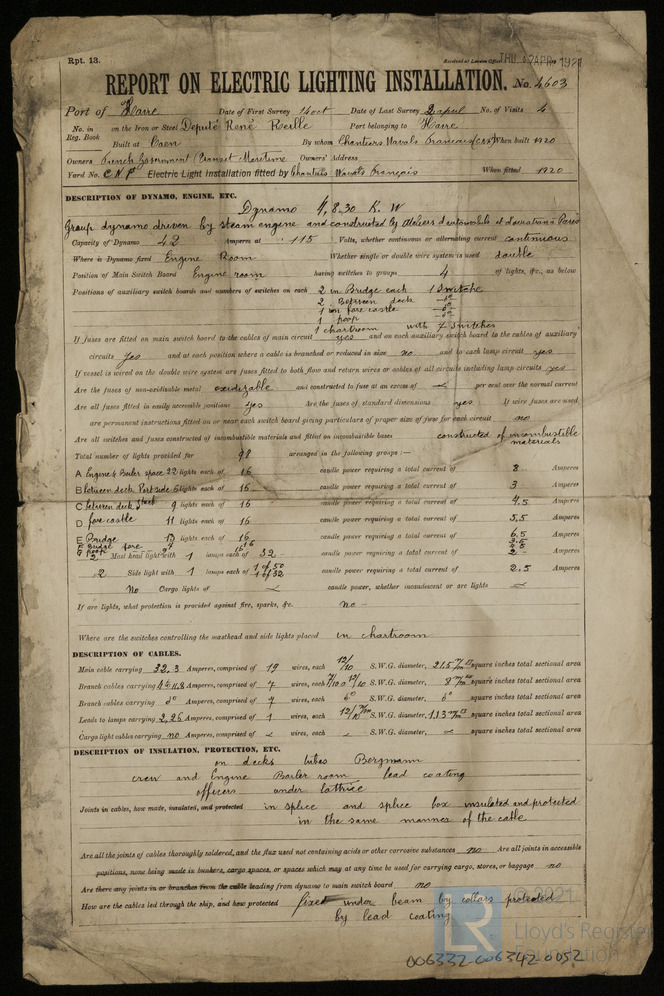 Rpt. 13.
Received at London Office THU. 7 APR 1921
REPORT ON ELECTRIC LIGHTING INSTALLATION. No. 4603
Port of Havre Date of First Survey 14 oct Date of Last Survey 2 april No. of Visits 4
No. in Reg. Book on the Iron or Steel Deputé René Reille Port belonging to Havre
Built at Caen By whom Chantiers Navals Francais When built 1920
Owners French Government (Transit Maritime Owners' Address
Yard No. C N F Electric Light Installation fitted by Chantiers Navals Français When fitted 1920
DESCRIPTION OF DYNAMO, ENGINE, ETC.
Dynamo 4,8.30 K.W
Group dynamo driven by steam engine and constructed by Ateliers d'automobile et d'aviation à Paris
Capacity of Dynamo 42 Amperes at 115 Volts, whether continuous or alternating current continuous
Where is Dynamo fixed Engine Room Whether single or double wire system is used double
Position of Main Switch Board Engine room having switches to groups 4 of lights, &c., as below
Positions of auxiliary switch boards and numbers of switches on each 2 in Bridge each 1 Switche
2 Between deck do
1 in fore castle do
1 poop do
1 chartroom with 7 switches
If fuses are fitted on main switch board to the cables of main circuit yes and on each auxiliary switch board to the cables of auxiliary
circuits yes and at each position where a cable is branched or reduced in size no and to each lamp circuit yes
If vessel is wired on the double wire system are fuses fitted to both flow and return wires or cables of all circuits including lamp circuits yes
Are the fuses of non-oxidizable metal oxidizable and constructed to fuse at an excess of per cent over the normal current
Are all fuses fitted in easily accessible positions yes Are the fuses of standard dimensions yes If wire fuses are used
are permanent instructions fitted on or near each switch board giving particulars of proper size of fuse for each circuit no
Are all switches and fuses constructed of incombustible materials and fitted on incombustible bases constructed of incombustible materials
Total number of lights provided for 98 arranged in the following groups :—
A Engine & Boiler space 22 lights each of 16 candle power requiring a total current of 8 Amperes
B between deck Port side 6 lights each of 16 candle power requiring a total current of 3 Amperes
C between deck Starb 9 lights each of 16 candle power requiring a total current of 4.5 Amperes
D fore castle 11 lights each of 16 candle power requiring a total current of 5.5 Amperes
E Bridge 13 lights each of 16 candle power requiring a total current of 6.5 Amperes
F Bridge fore 7 16 3.5
G Poop 9 16 4.5
2 Mast head light with 1 lamps each of 32 candle power requiring a total current of 2 Amperes
2 Side light with 1 lamps each of 1 of 50 1 of 32 candle power requiring a total current of 2.5 Amperes
No Cargo lights of candle power, whether incandescent or arc lights
If arc lights, what protection is provided against fire, sparks, &c. no
Where are the switches controlling the masthead and side lights placed in chartroom
DESCRIPTION OF CABLES.
Main cable carrying 32.3 Amperes, comprised of 19 wires, each 12/10 S.W.G. diameter, 21.5 square inches total sectional area
Branch cables carrying Amperes, comprised of 7 wires, each S.W.G. diameter, 8 square inches total sectional area
Branch cables carrying do Amperes, comprised of 7 wires, each do S.W.G. diameter, do square inches total sectional area
Leads to lamps carrying 2,25 Amperes, comprised of 1 wires, each 12/10 S.W.G. diameter, 1.13 square inches total sectional area
Cargo light cables carrying no Amperes, comprised of wires, each S.W.G. diameter, square inches total sectional area
DESCRIPTION OF INSULATION, PROTECTION, ETC.
on decks tubes Bergmann
crew and Engine Boiler room lead coating
officers under lattice
Joints in cables, how made, insulated, and protected in splice and splice box insulated and protected
in the same manner of the cable
Are all the joints of cables thoroughly soldered, and the flux used not containing acids or other corrosive substances no Are all joints in accessible
positions, none being made in bunkers, cargo spaces, or spaces which may at any time be used for carrying cargo, stores, or baggage no
Are there any joints in or branches from the cable leading from dynamo to main switch board no
How are the cables led through the ship, and how protected fixed under beam by collars protected
by lead coating
© 2021
LR
Lloyd's Register
Foundation
006332 006342 0052